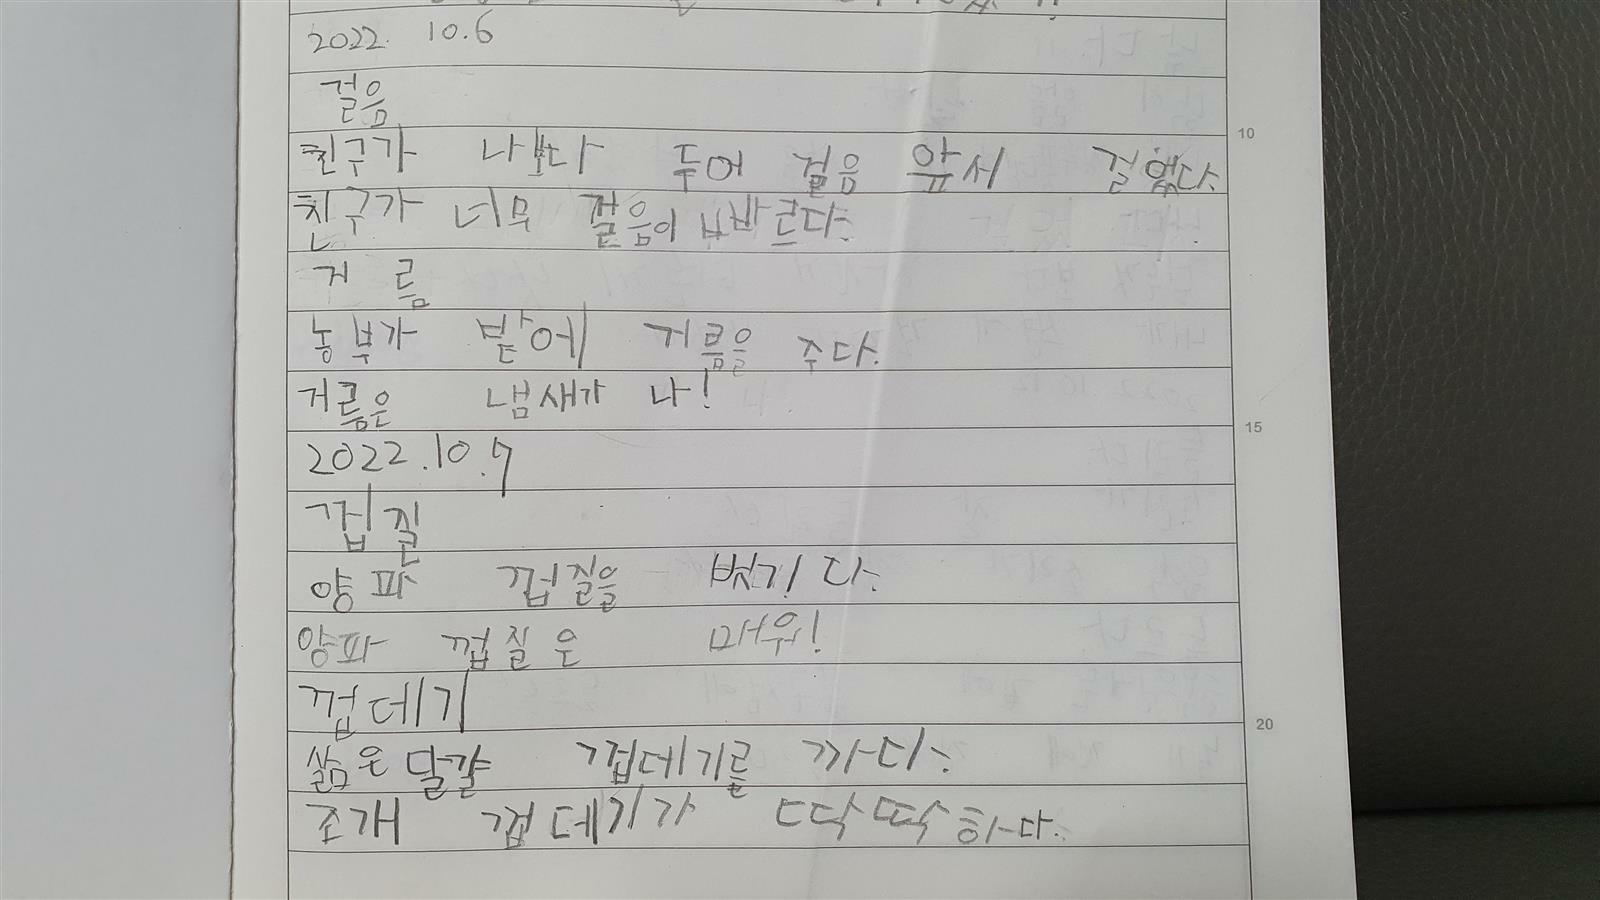 2022. 10.6
걸음
친구가 나보다 두어 걸음 앞서 걸었다.
친구가 너무 걸음이 빠르다.
거름
농부가 밭에 거름을 주다.
거름은 냄새가 나!
2022.10.7
껍질
양파 껍질을 벗기다.
양파 껍질은 매워!
껍데기
삶은 달걀 껍데기를 까다.
조개 껍데기가 딱딱하다.
10
15
20